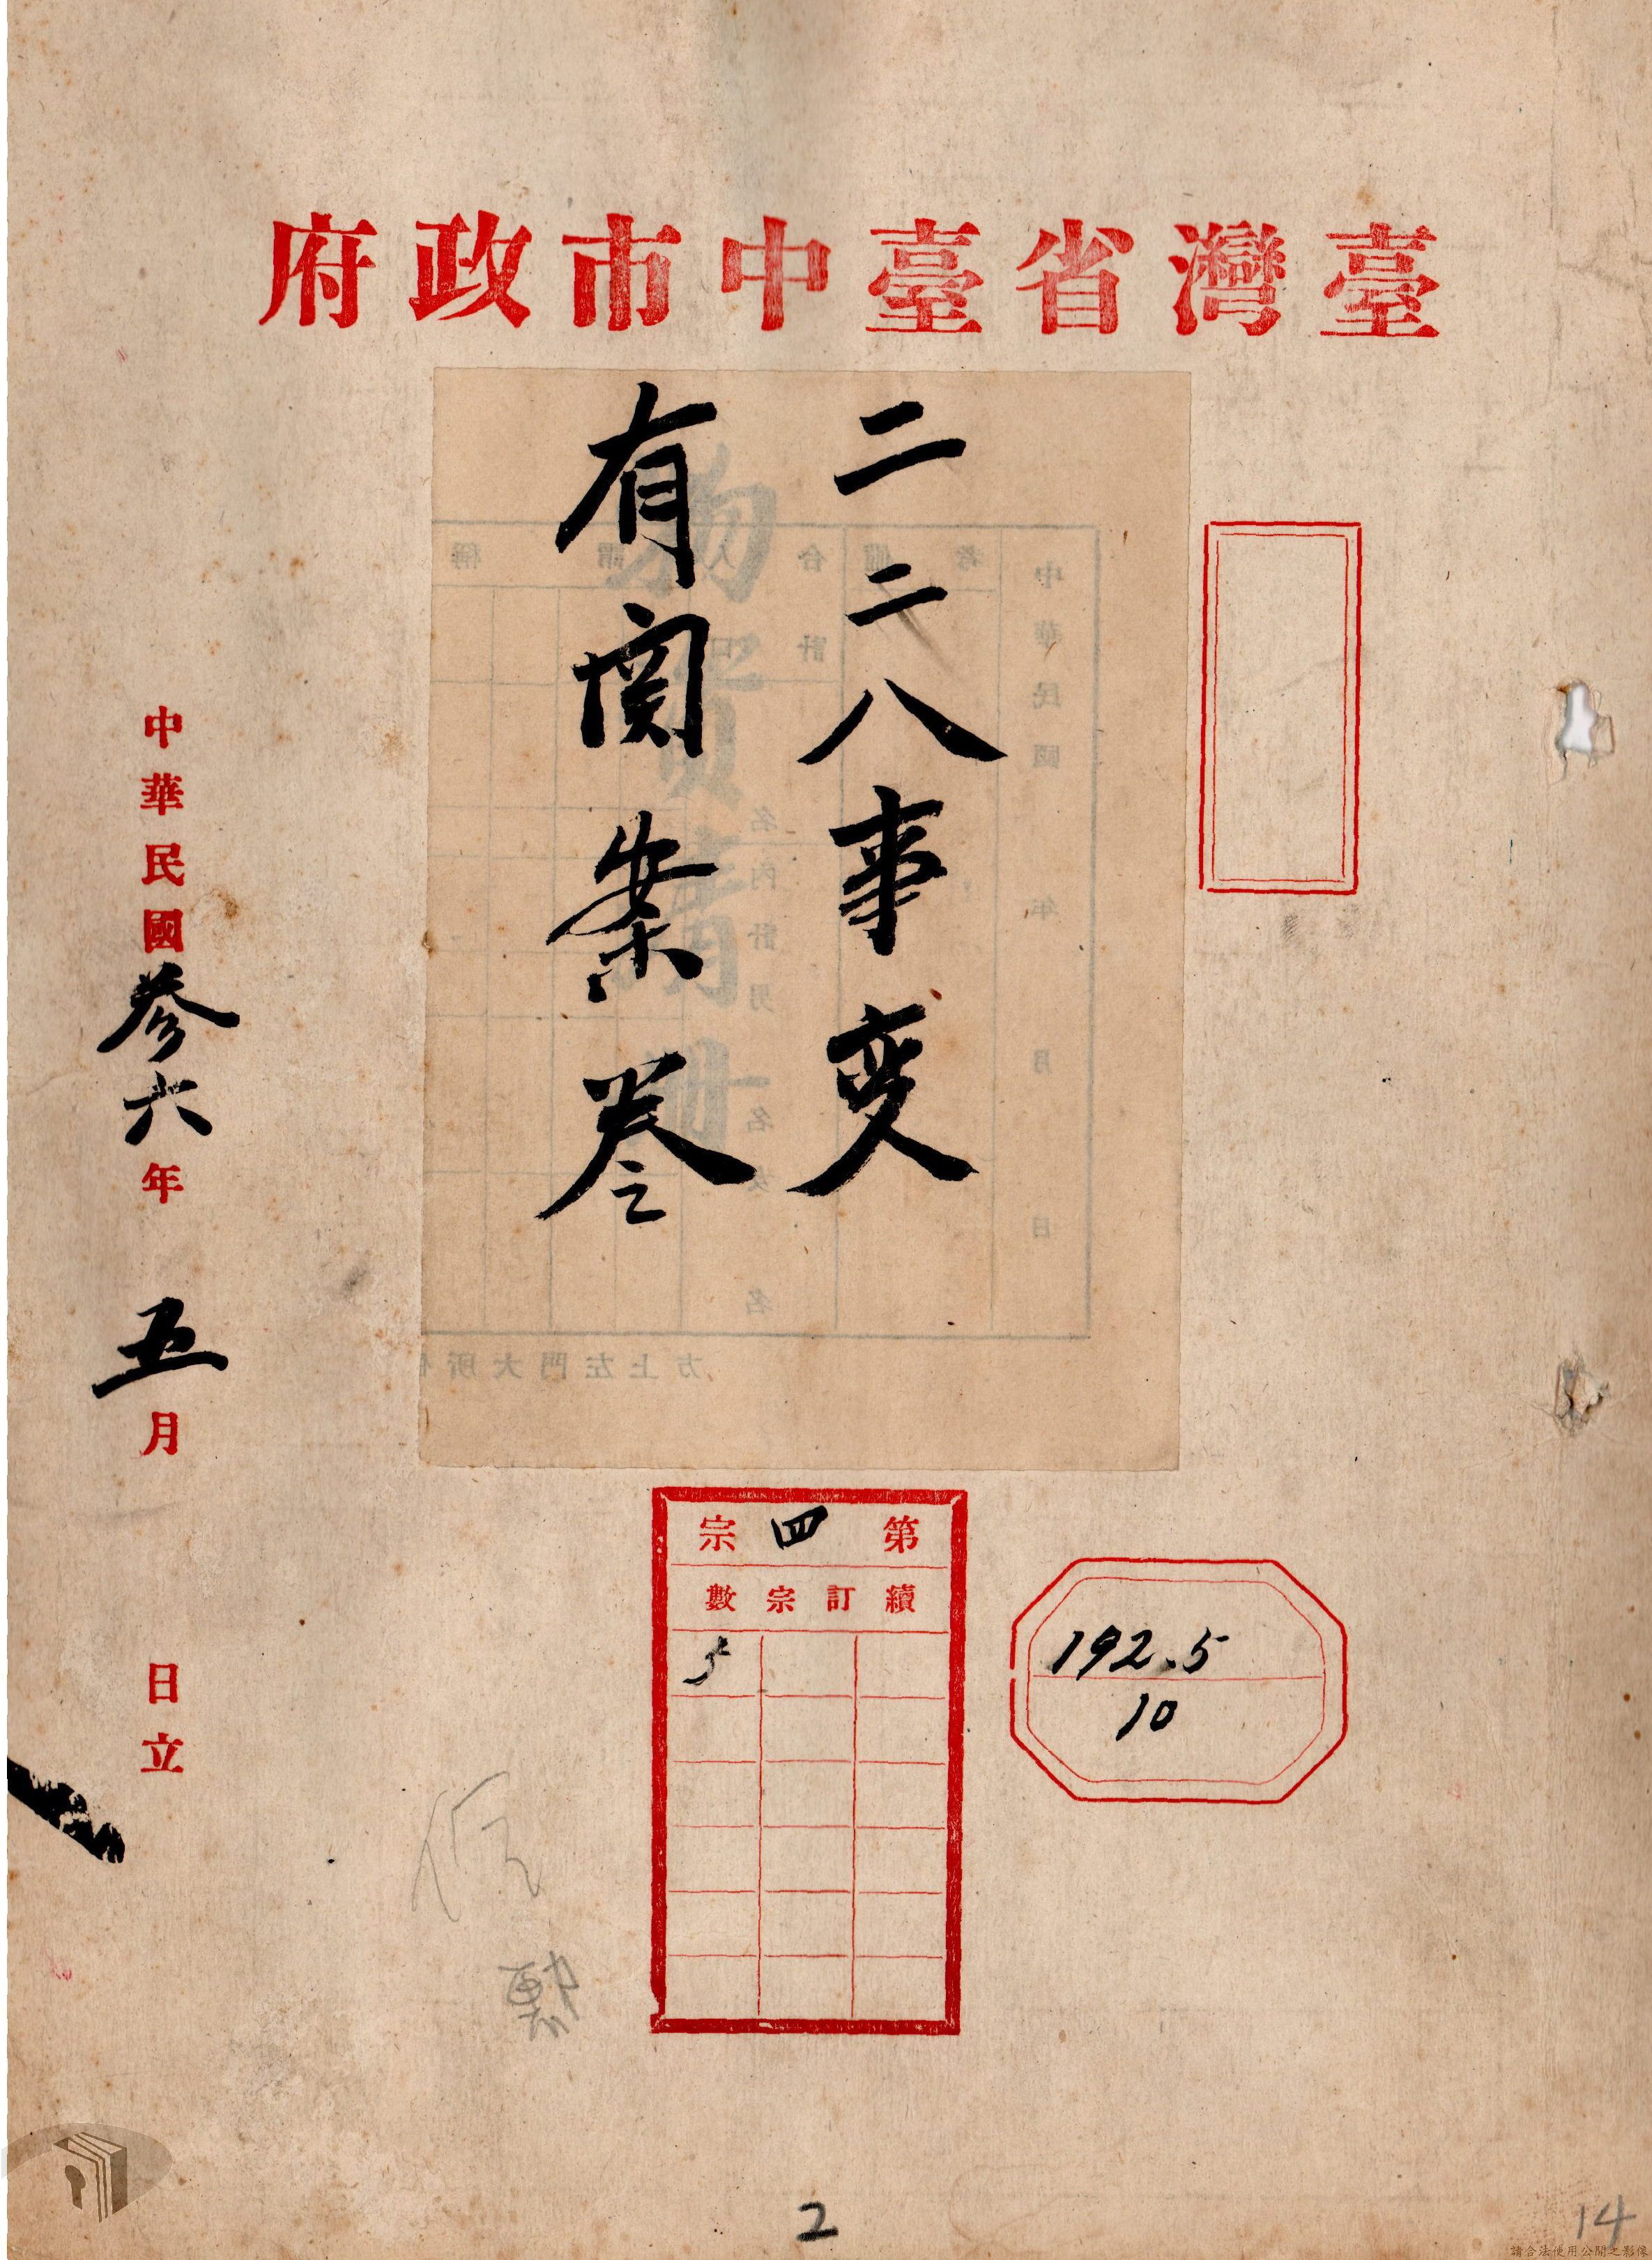 臺灣省臺中市政府
二二八事变
有関案卷
中華民國叁六年 五月 日立
第四宗
續訂宗數
5
192.5
10
2
14
請合法使用公開之影像